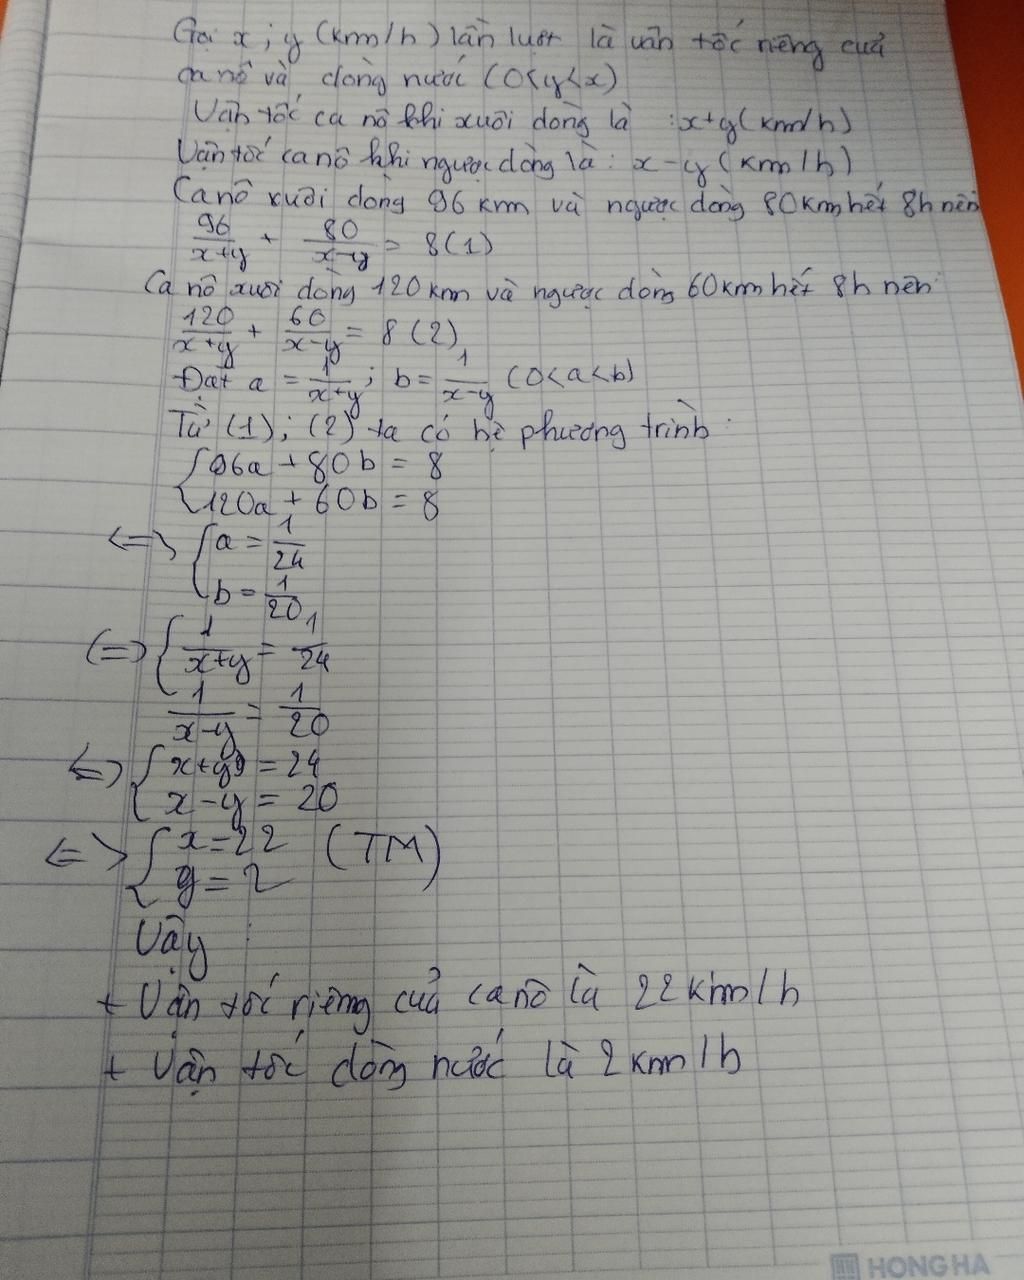 Gọi x; y (km/h) lần lượt là vận tốc riêng của
ca nô và dòng nước (0<y<x)
Vận tốc ca nô khi xuôi dòng là : x+y (km/h)
Vận tốc ca nô khi ngược dòng là : x-y (km/h)
Ca nô xuôi dòng 96 km và ngược dòng 80km hết 8h nên
96/(x+y) + 80/(x-y) = 8 (1)
Ca nô xuôi dòng 120 km và ngược dòng 60km hết 8h nên
120/(x+y) + 60/(x-y) = 8 (2)
Đặt a = 1/(x+y); b = 1/(x-y) (0<a<b)
Từ (1); (2) ta có hệ phương trình:
{ 96a + 80b = 8
120a + 60b = 8
<=> { a = 1/24
b = 1/20
(=) { 1/(x+y) = 1/24
1/(x-y) = 1/20
<=> { x+y = 24
x-y = 20
<=> { x=22 (TM)
y = 2
Vậy :
+ Vận tốc riêng của ca nô là 22 km/h
+ Vận tốc dòng nước là 2 km/h
HONG HA